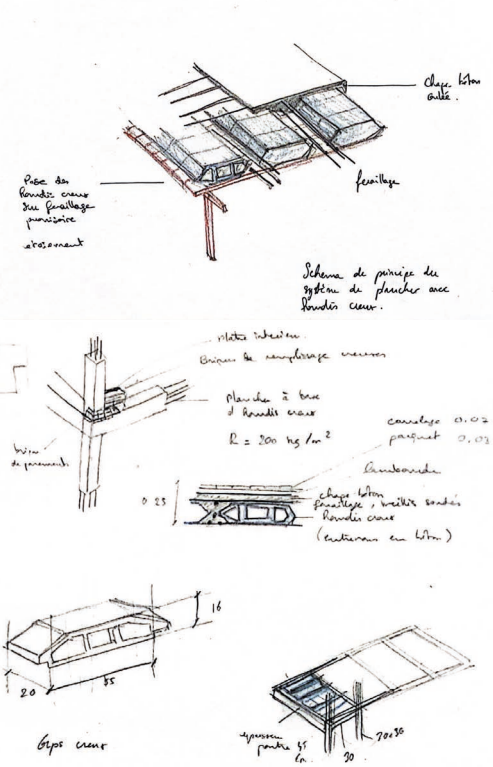 Chape béton
coulée.
Pose des
hourdis creux
sur ferraillage
provisoire
étaiement
ferraillage
Schema de principe du
système de plancher avec
hourdis creux.
Platre interieur
Briques de remplissage creuses
plancher à base
d'hourdis creux
R = 200 kg/m²
brique
de parement
carrelage 0.02
parquet 0.03
lambourde
0.23
chape béton
ferraillage, treillis soudés
hourdis creux
(entrevous en béton)
16
20
55
creux
épaisseur
poutre
30